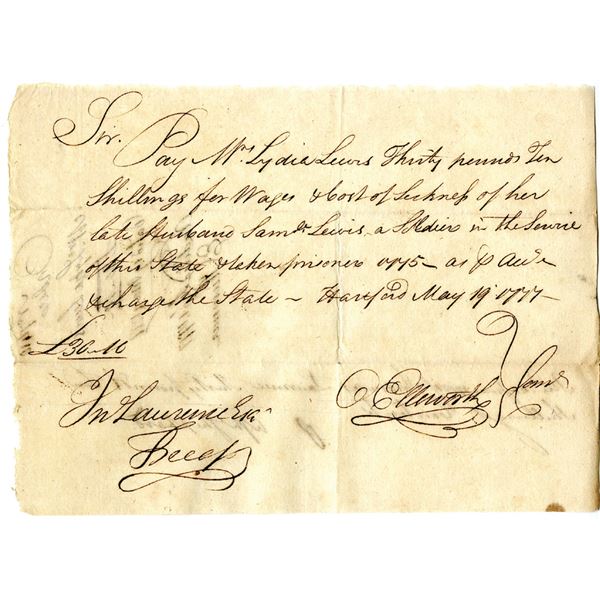 Sir.
Pay Mrs Lydia Lewis Thirty pounds Ten
Shillings for Wages & Cost of Sickness of her
late Husband Saml Lewis a Soldier in the Service
of this State & taken prisoner 1775 – as
& charge the State – Hartford May 19 1777 –
£30..10
Jn Lawrence Esqr
O Ellsworth